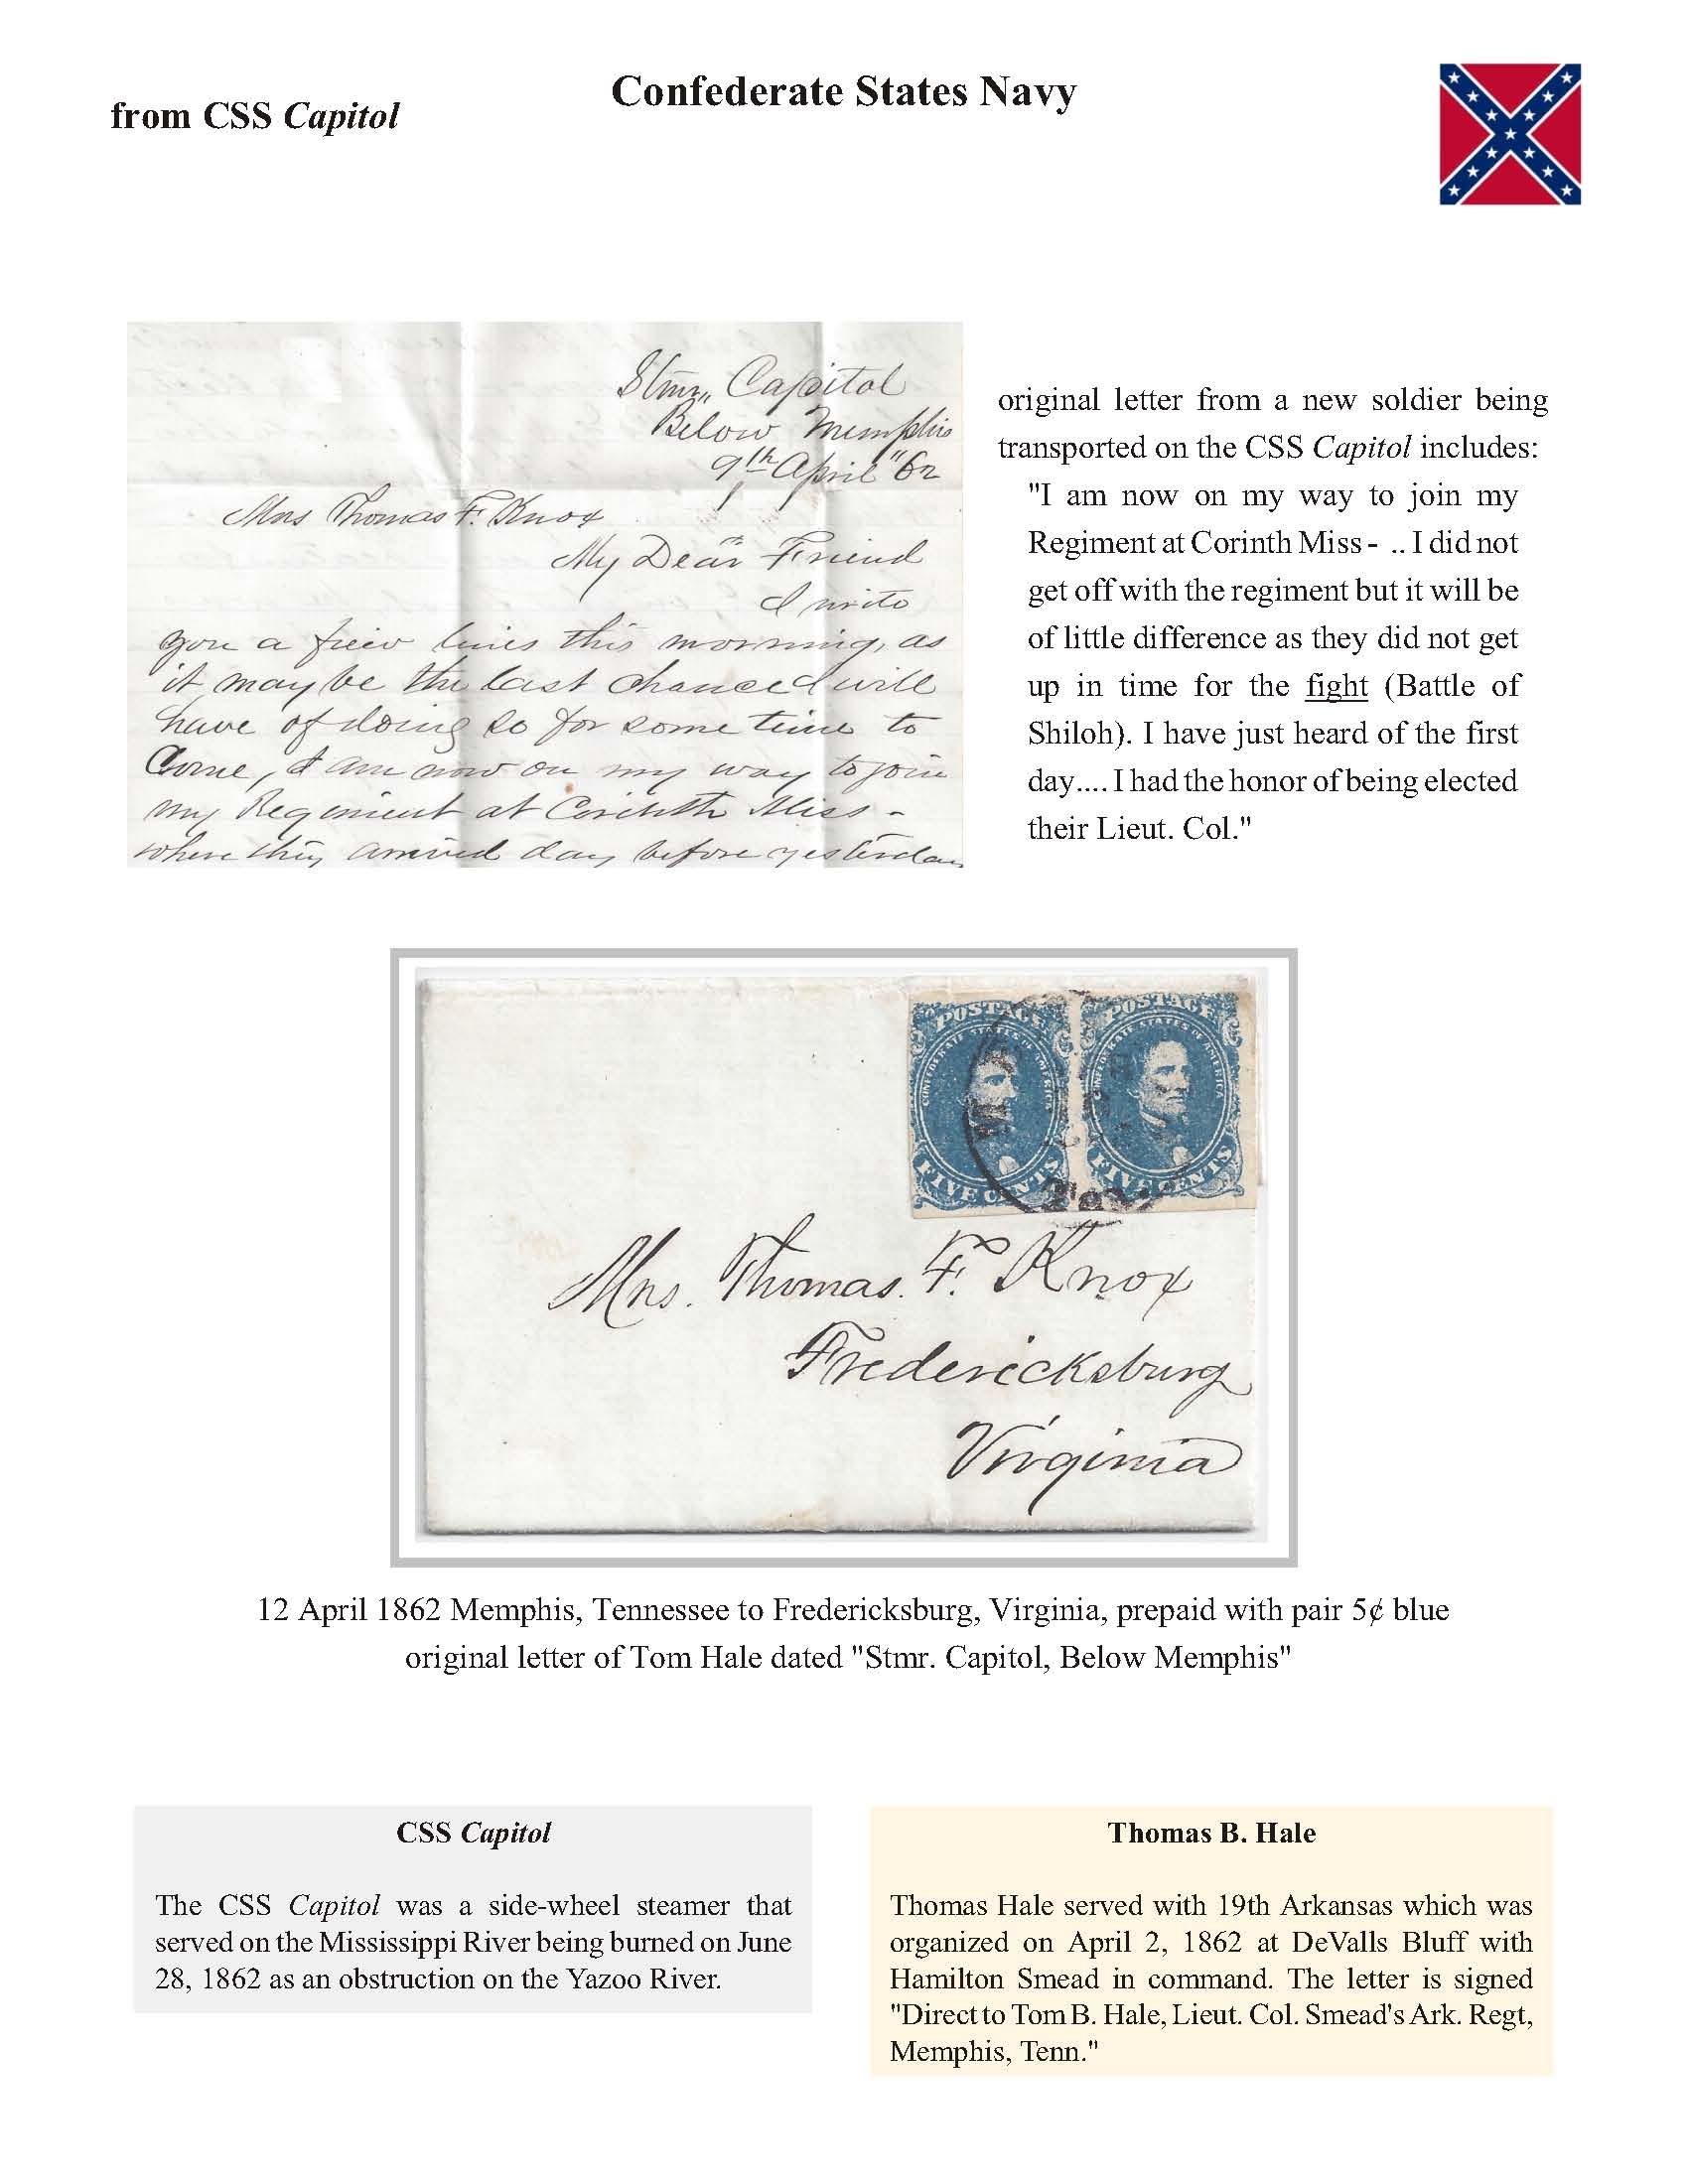 Confederate States Navy
from CSS Capitol
Stmr,, Capitol
Below Memphis
9th April "62
Mrs Thomas F. Knox
My Dear Friend
I write
you a fiew lines this morning, as
it may be the last chance I will
have of doing so for some time to
Come, I am now on my way to join
my Regiment at Corinth Miss -
where they arrived day before yesterday
original letter from a new soldier being
transported on the CSS Capitol includes:
"I am now on my way to join my
Regiment at Corinth Miss - .. I did not
get off with the regiment but it will be
of little difference as they did not get
up in time for the fight (Battle of
Shiloh). I have just heard of the first
day.... I had the honor of being elected
their Lieut. Col."
POSTAGE POSTAGE
CONFEDERATE STATES OF AMERICA CONFEDERATE STATES OF AMERICA
FIVE CENTS FIVE CENTS
Mrs. Thomas. F. Knox
Fredericksburg
Virginia
12 April 1862 Memphis, Tennessee to Fredericksburg, Virginia, prepaid with pair 5¢ blue
original letter of Tom Hale dated "Stmr. Capitol, Below Memphis"
CSS Capitol
The CSS Capitol was a side-wheel steamer that
served on the Mississippi River being burned on June
28, 1862 as an obstruction on the Yazoo River.
Thomas B. Hale
Thomas Hale served with 19th Arkansas which was
organized on April 2, 1862 at DeValls Bluff with
Hamilton Smead in command. The letter is signed
"Direct to Tom B. Hale, Lieut. Col. Smead's Ark. Regt,
Memphis, Tenn."